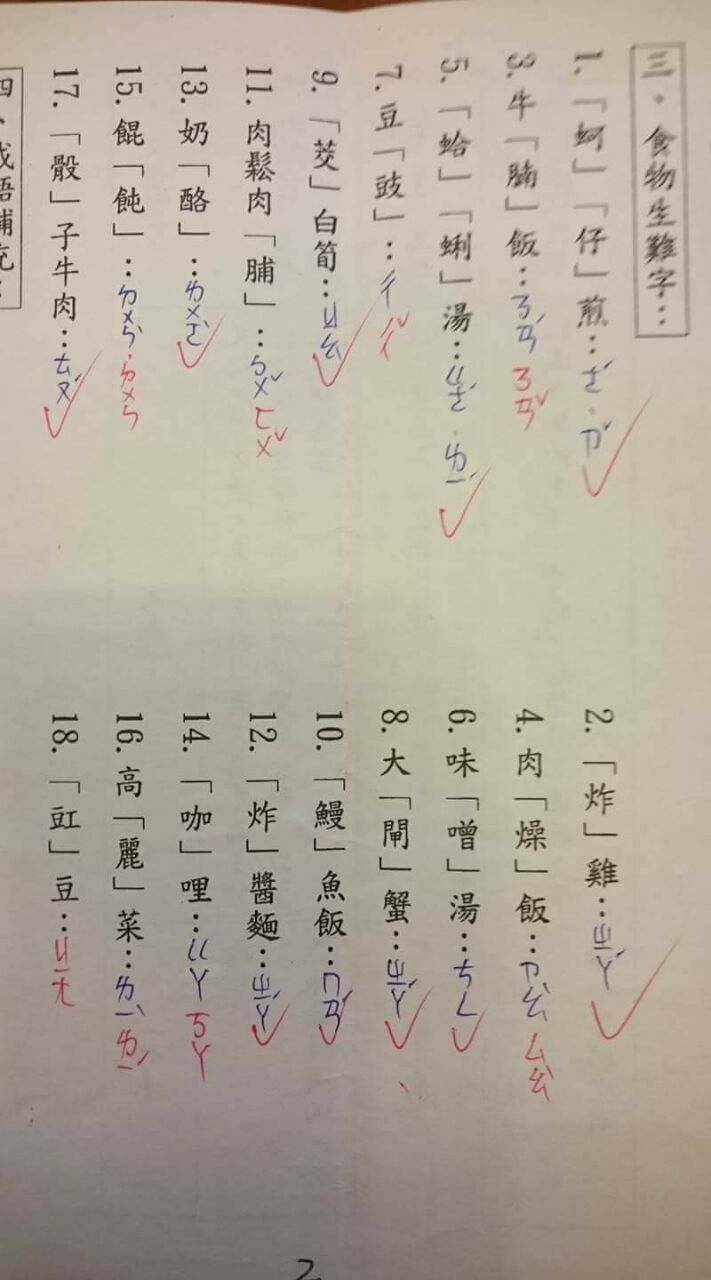 三、食物生難字：
1.「蚵」「仔」煎：ㄜˊ．ㄗˇ
2.「炸」雞：ㄓㄚˊ
3.牛「腩」飯：ㄋㄢˊ ㄋㄢˇ
4.肉「燥」飯：ㄗㄠˋ ㄙㄠˋ
5.「蛤」「蜊」湯：ㄍㄜˊ．ㄌㄧˊ
6.味「噌」湯：ㄘㄥ
7.豆「豉」：ㄔ ㄔˇ
8.大「閘」蟹：ㄓㄚˊ
9.「茭」白筍：ㄐㄠ
10.「鰻」魚飯：ㄇㄢˊ
11.肉鬆肉「脯」：ㄆㄨˇ ㄈㄨˇ
12.「炸」醬麵：ㄓㄚˊ
13.奶「酪」：ㄌㄨㄛˋ
14.「咖」哩：ㄍㄚ ㄎㄚ
15.餛「飩」：ㄉㄨㄣˋ．ㄉㄨㄣ
16.高「麗」菜：ㄌㄧˋ ㄌㄧˊ
17.「骰」子牛肉：ㄊㄡˊ
18.「豇」豆：ㄐㄧㄤ
四、成語補充：
2